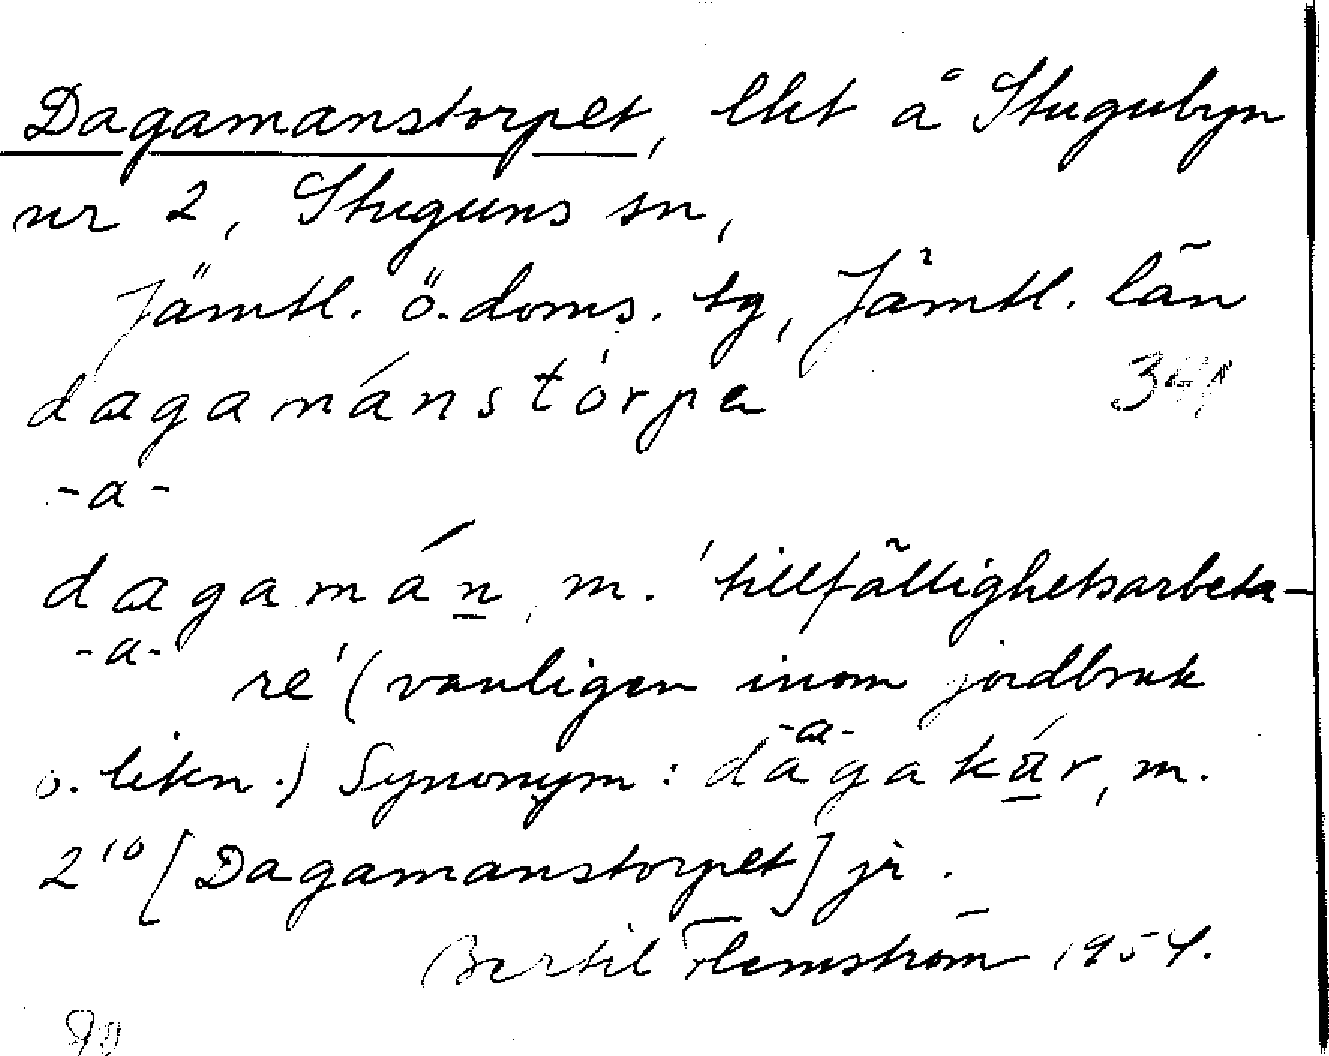 Dagamanstorpet, lht å Stugubyn
nr 2, Stuguns sn,
Jämtl. ö. doms. tg, Jämtl. län
dagamánstòrpa 341
-a-
dagamán, m. 'tillfällighetsarbeta-
-a- re' (vanligen inom jordbruk
-a-
o. likn.) Synonym: dägakár, m.
2¹⁰ [Dagamanstorpet] jr.
Bertil Flemström 1954.